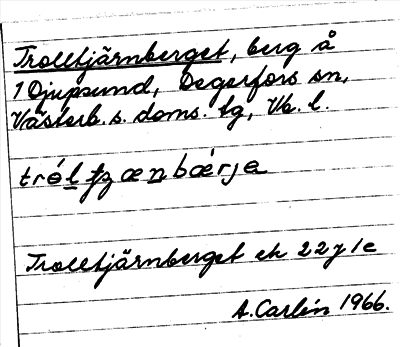 Trolltjärnberget, berg å
1 Djupsund, Degerfors sn,
Västerb. s. doms. tg, Vb. l.
Trolltjärnberget ek 22 y 1 c
A. Carlén 1966.